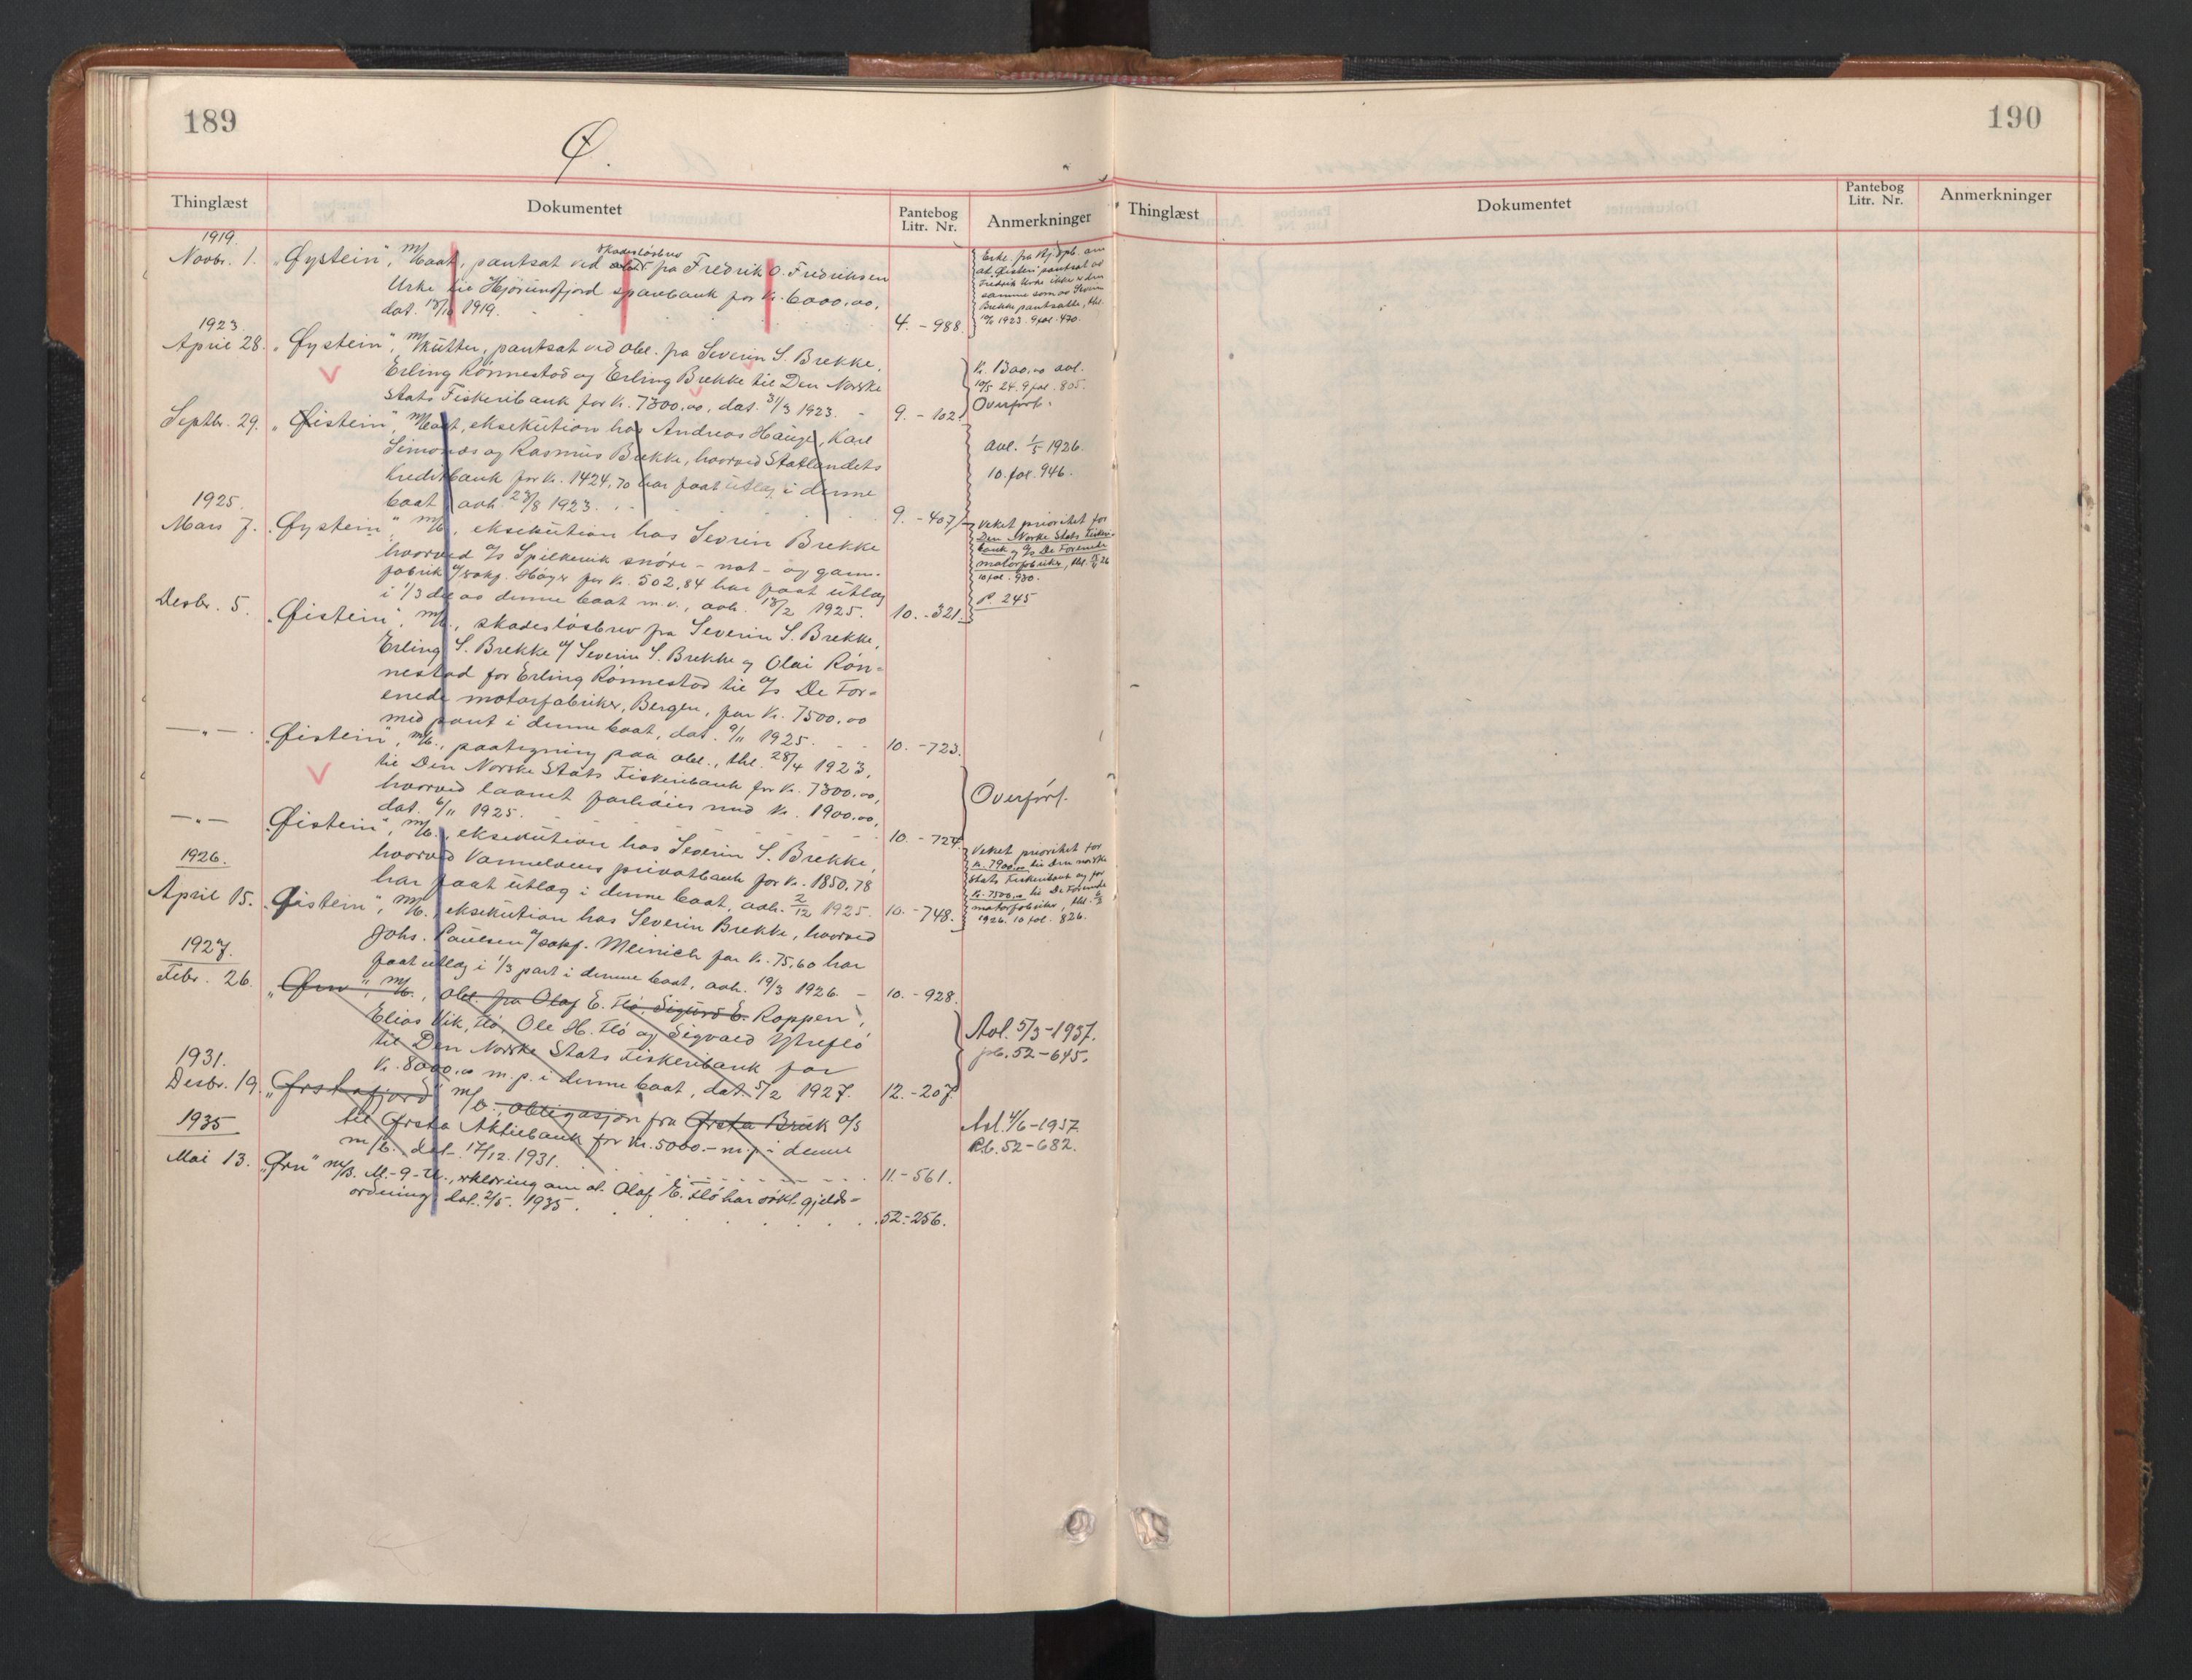 189
Ø.
Thinglæst
Dokumentet
Pantebog
Litr. Nr.
Anmerkninger
1919.
Novbr. 1. „Øystein", m/baat, pantsat ved skadesløsbrev fra Fredrik O. Fredriksen
Urke til Hjørundfjord sparebank for kr. 6000,00,
dat. 18/10 1919. 4. - 988.
Erkl. fra Hj.fj. spb. om
at Øistein pantsat av
Fredrik Urke ikke er den
samme som av Severin
Brekke pantsatte, thl.
1923. 9 fol. 470.
1923.
April 28. „Øystein", m/kutter, pantsat ved obl. fra Severin S. Brekke,
Erling Rønnestad og Erling Brekke til Den Norske
Stats Fiskeribank for kr. 7300,00, dat. 31/3 1923. - 9. - 102.
Kr. 1300,00 avl.
10/5 24. 9 fol. 805.
Overført.
Septbr. 29. „Øistein", m/baat, eksekution hos Andreas Hauge, Karl
Simonas og Rasmus Brekke, hvorved Statlandets
Kreditbank for kr. 1424,70 har faat utlæg i denne
baat, avh. 23/8 1923. 9. - 407
avl. 1/5 1926.
10. fol. 946.
1925.
Mars 7. „Øystein", m/b., eksekution hos Severin Brekke
hvorved a/s Spilkevik snøre- not- og garn-
fabrik v/sakf. Høyer for kr. 502,84 har faat utlæg
i 1/3 del av denne baat m.v., avh. 18/2 1925. 10. - 321.
Veket prioritet for
Den Norske Stats Fiskeri-
bank og a/s De Forenede
motorfabriker, thl. 26
10 fol. 930.
P. 245
Desbr. 5. „Øistein", m/b., skadesløsbrev fra Severin S. Brekke,
Erling S. Brekke v/ Severin S. Brekke og Olai Røn-
nestad for Erling Rønnestad til a/s De For-
enede motorfabriker, Bergen, for kr. 7500,00
med pant i denne baat, dat. 9/11 1925. - - 10. - 723.
— „ — „Øistein", m/b., paategning paa obl., thl. 28/4 1923,
til Den Norske Stats Fiskeribank for kr. 7300,00,
hvorved laanet forhøies med kr. 1900,00,
dat. 6/11 1925. 10. - 724
Overført.
— „ — „Øistein", m/b., eksekution hos Severin S. Brekke,
hvorved Vannelvens privatbank for kr. 1850,78
har faat utlæg i denne baat, avh. 2/12 1925. 10. - 748.
Veket prioritet for
kr. 7900,00 til Den norske
Stats Fiskeribank og for
kr. 7500,00 til De Forenede
motorfabriker, thl.
1926. 10 fol. 826.
1926.
April 15. „Øistein", m/b., eksekution hos Severin Brekke, hvorved
Johs. Paulsen v/sakf. Meinich for kr. 75,60 har
faat utlæg i 1/3 part i denne baat, avh. 19/3 1926. - 10. - 928.
1927.
Febr. 26. „Ørn", m/b., obl. fra Olaf E. Flø, Sigurd E. Roppen,
Elias Vik, Flø, Ole H. Flø og Sigvald Ytreflø
til Den Norske Stats Fiskeribank for
kr. 8000,00 m.p. i denne baat, dat. 5/2 1927. 12. - 207.
Avl. 5/3-1937.
pb. 52-645.
1931.
Desbr. 19. „Ørstafjord" m/b., obligasjon fra Ørsta Bruk a/s
til Ørsta Aktiebank for kr. 5000.- m.p. i denne
m/b. dat. 17/12. 1931. 11.- 561.
Avl. 4/6-1937
Pb. 52-682.
1935
Mai 13. „Ørn" m/b. M.-9-U., erklæring om at Olaf E. Flø har søkt gjelds-
ordning, dat. 2/5. 1935. 52-256.
190
Thinglæst
Dokumentet
Pantebog
Litr. Nr.
Anmerkninger